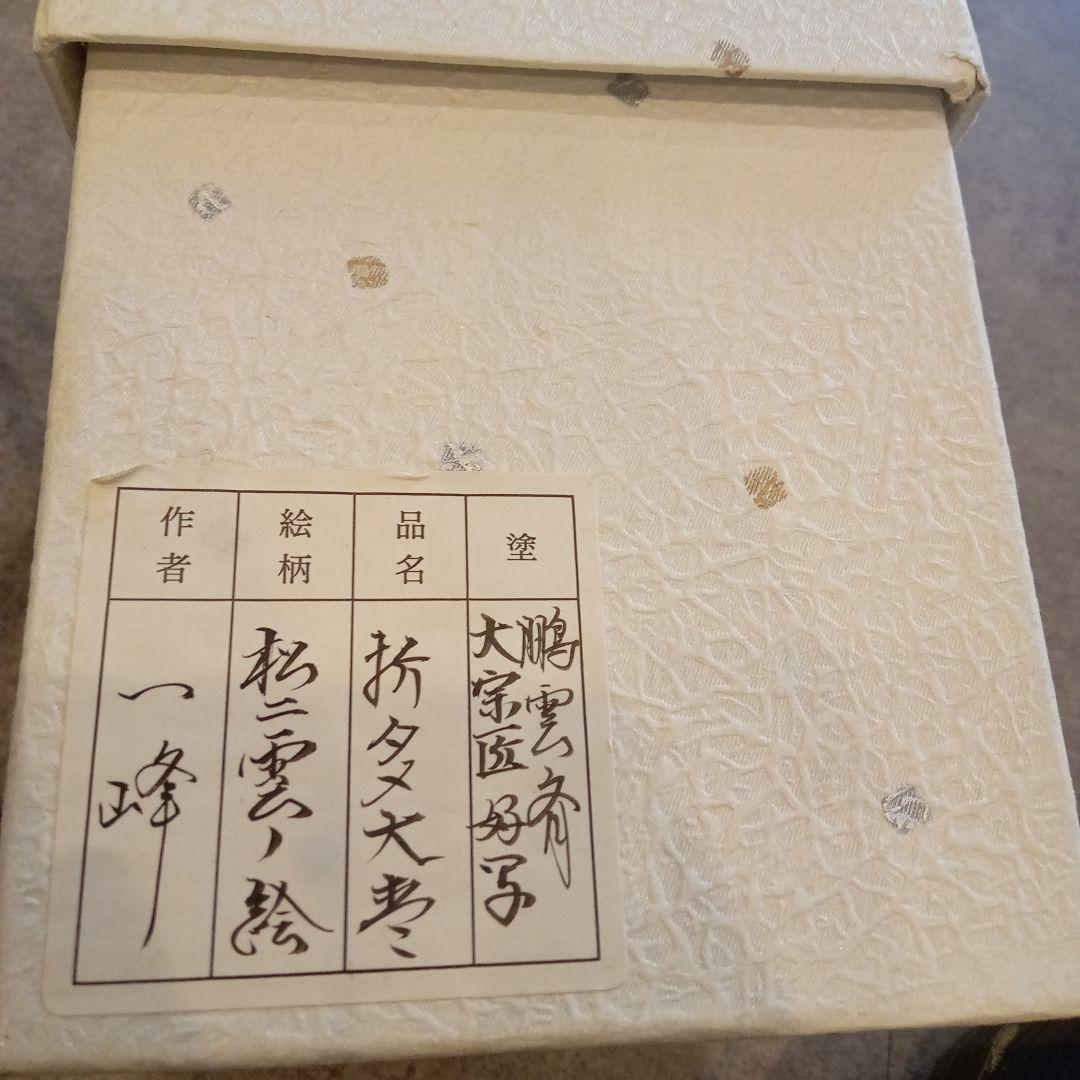 塗
鵬雲斎
大宗匠好写
品名
折タメ大棗
絵柄
松ニ雲ノ絵
作者
一峰